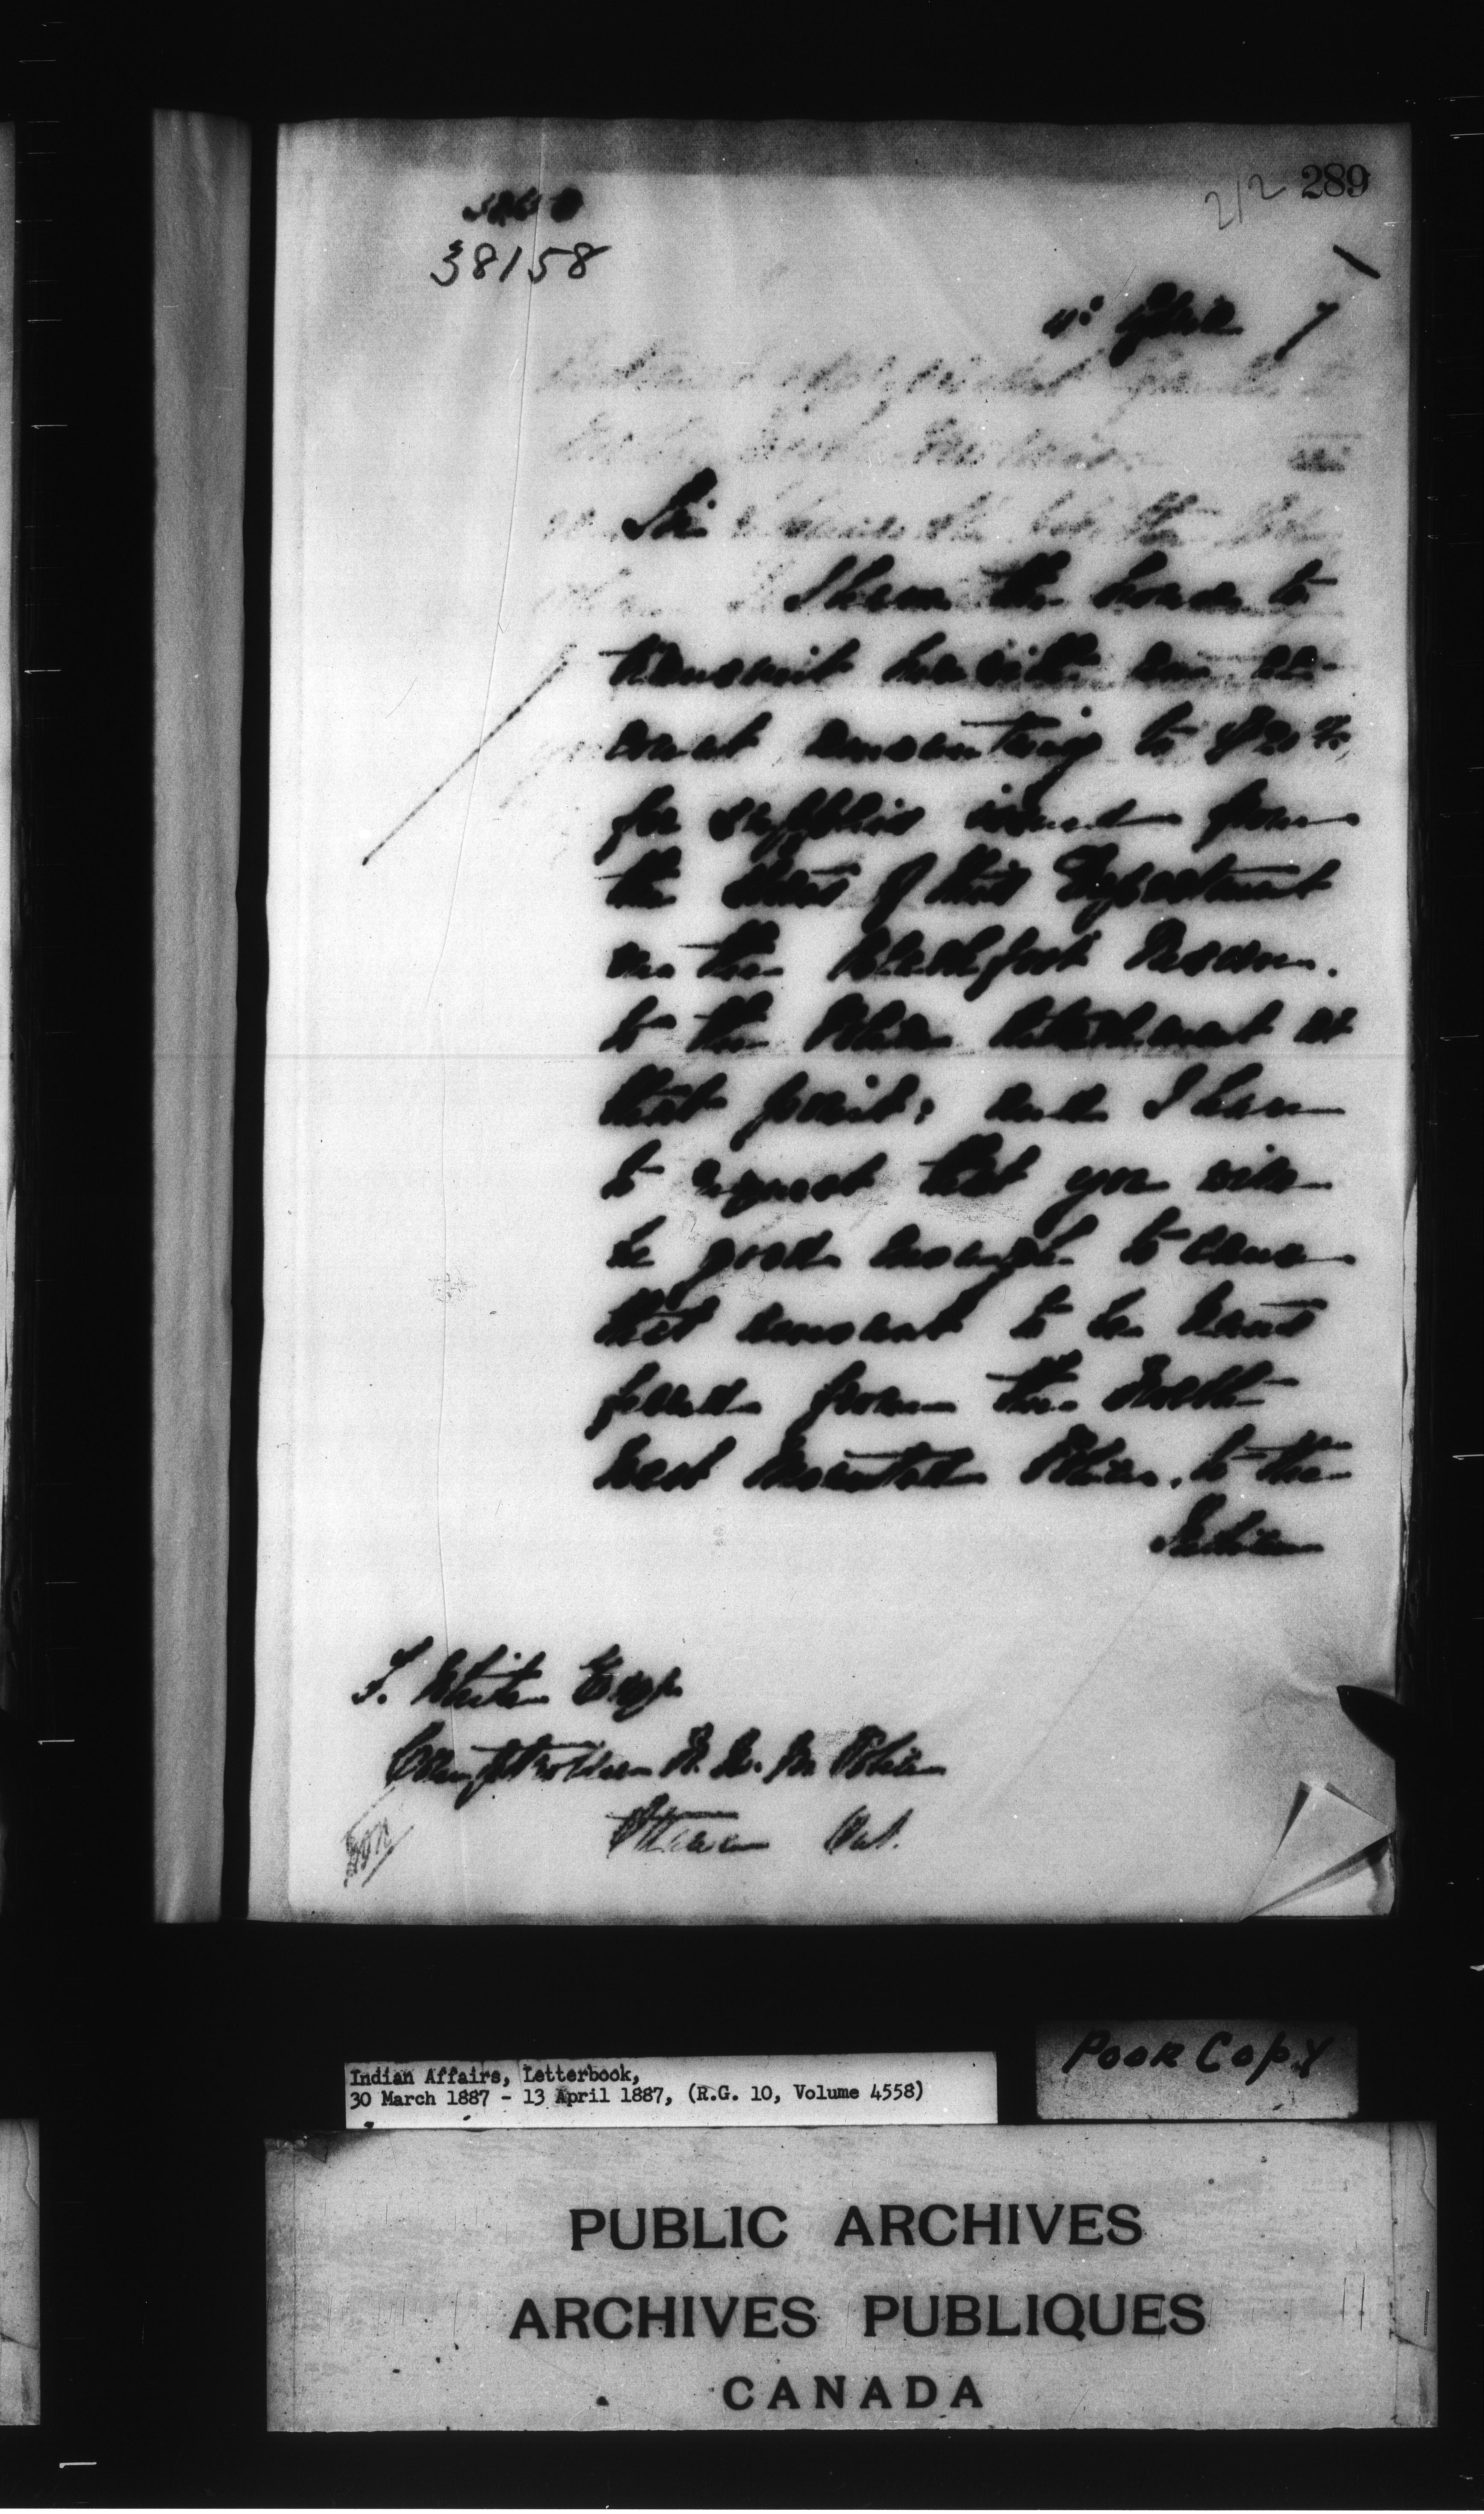 289
212
38158
11th April 7
Sir
I have the honor to
transmit herewith an ac-
count amounting to
for supplies issued from
the stores of this Department
on the Blackfoot Reserve.
to the Police detachment at
that point; and I have
to request that you will
be good enough to cause
that amount to be trans
ferred from the North
West Mounted Police, to the
Indian
F. White Esqr
Comptroller N. W. M Police
Ottawa Ont.
Indian Affairs, Letterbook,
30 March 1887 - 13 April 1887, (R.G. 10, Volume 4558)
Poor Copy
PUBLIC ARCHIVES
ARCHIVES PUBLIQUES
CANADA